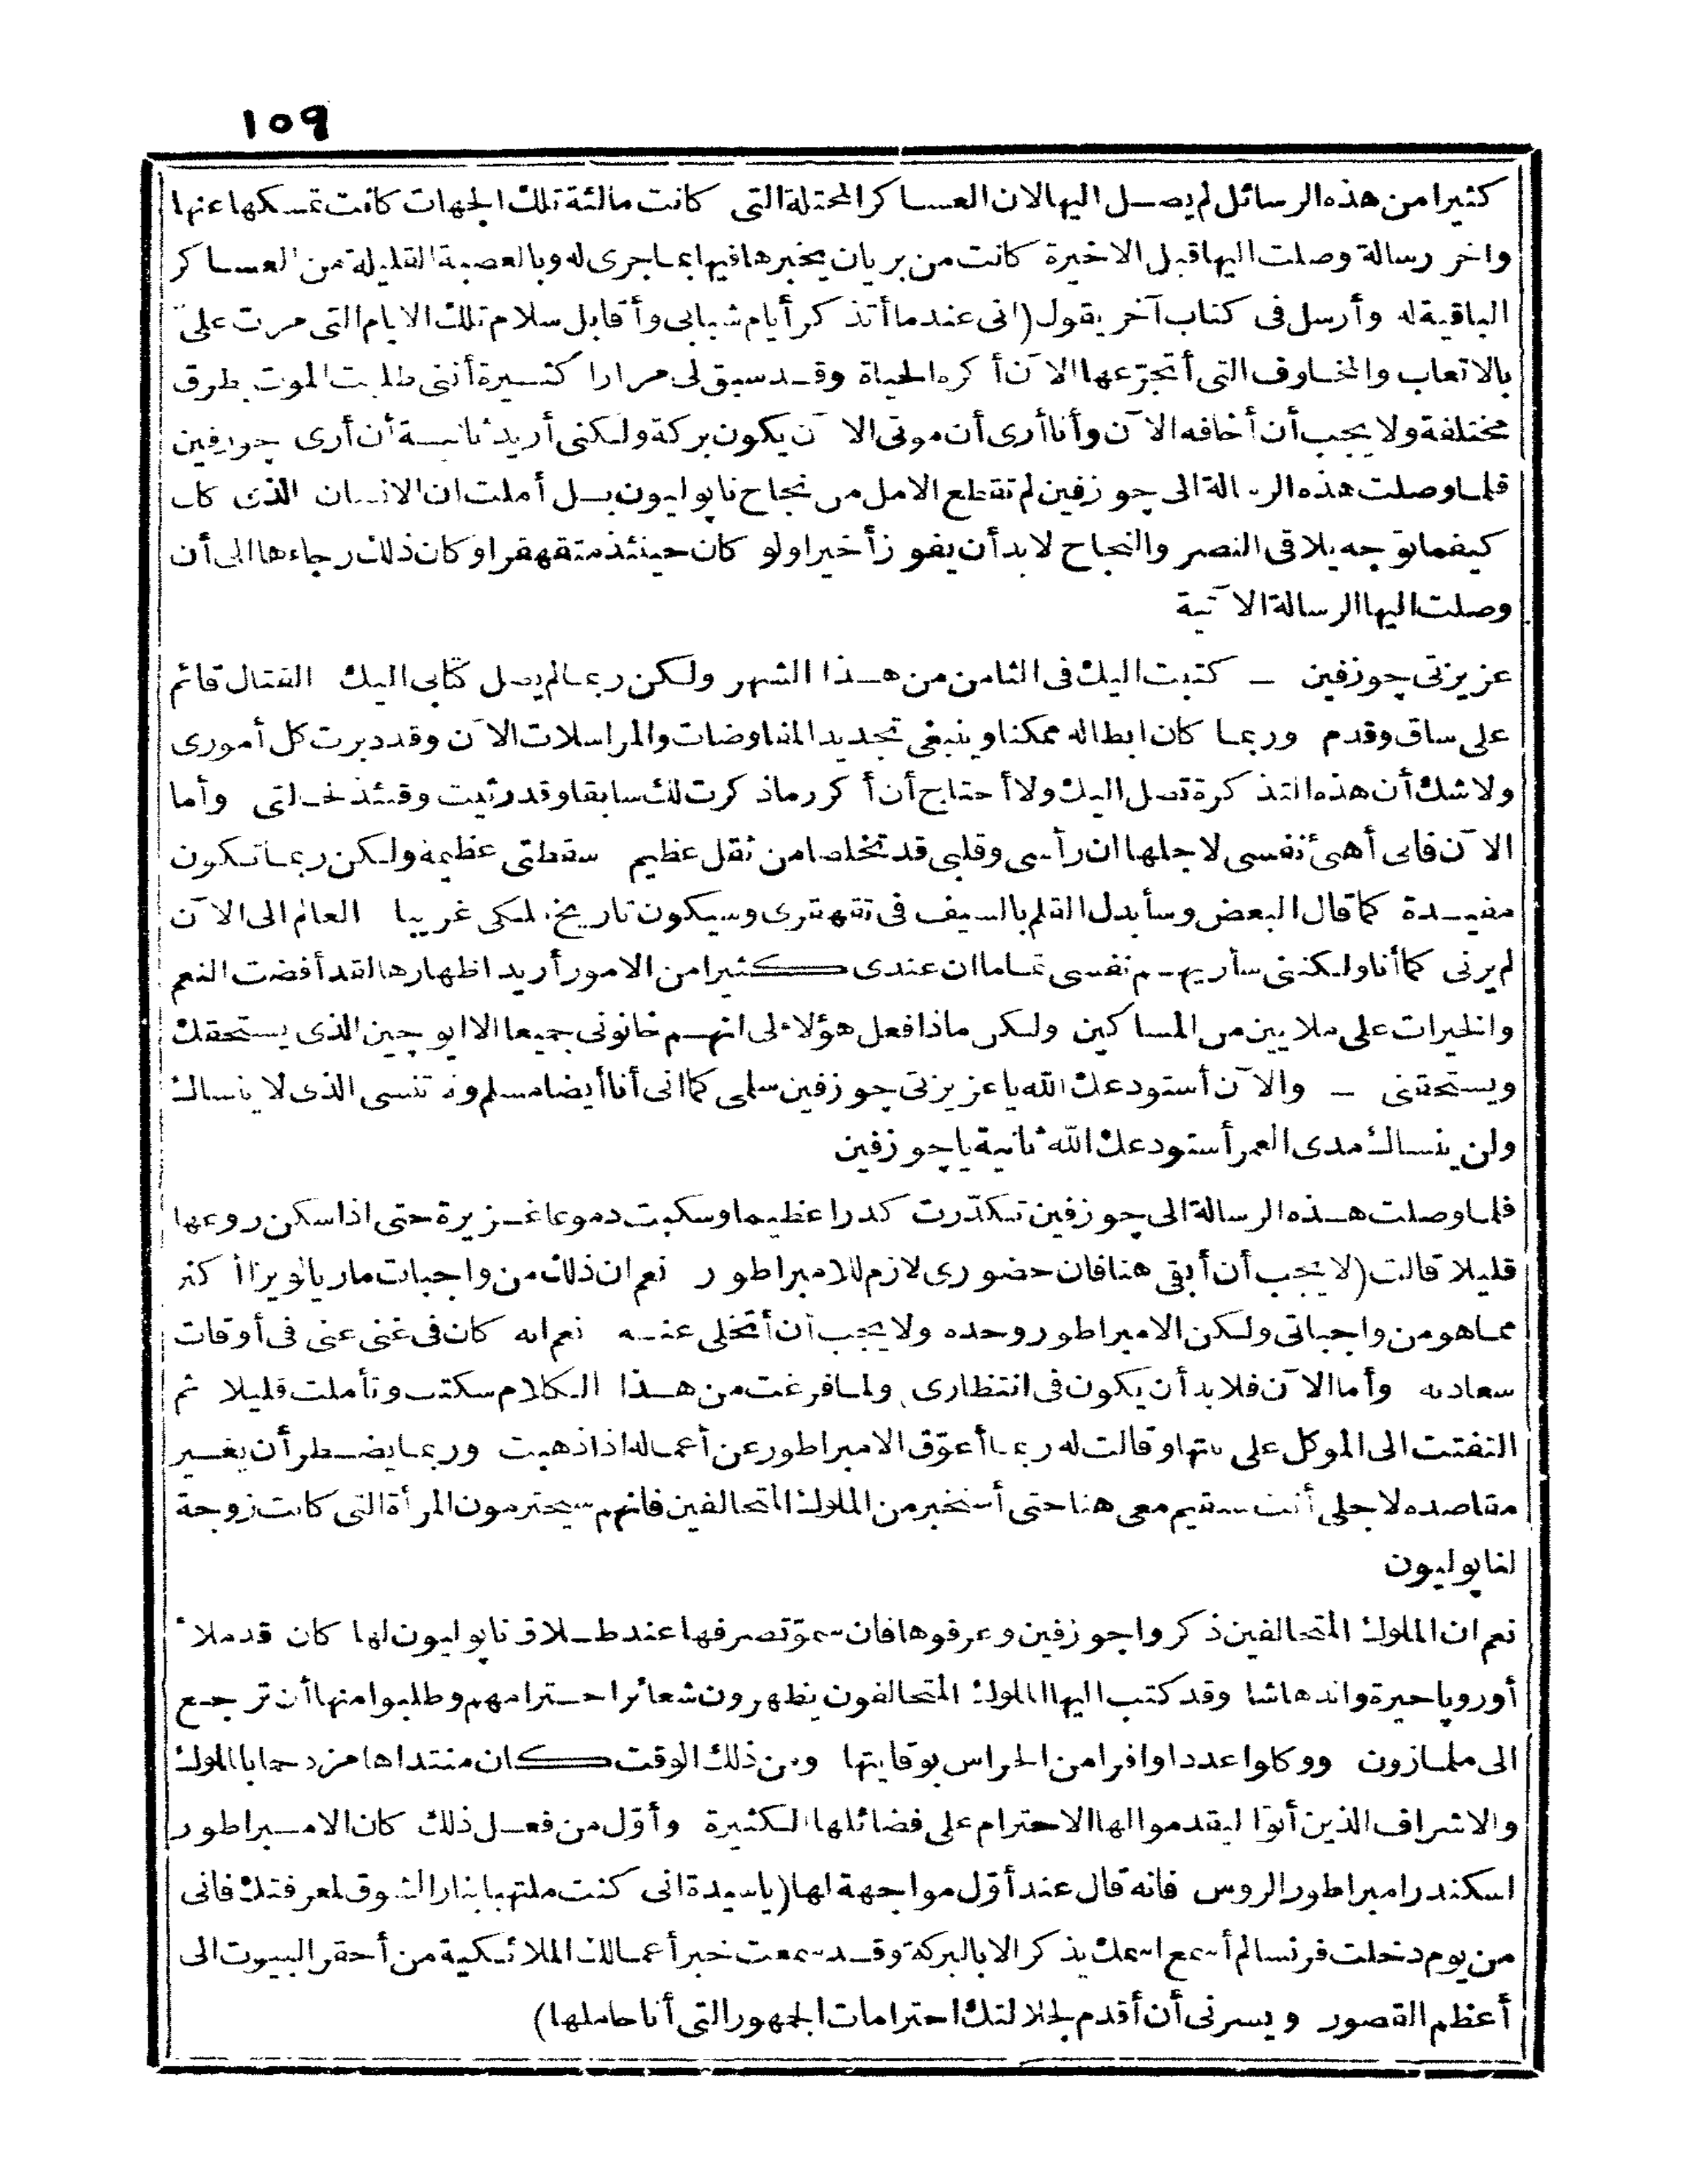 ١٥٩
كثيرا من هذه الرسائل لم يصل اليها لان العساكر المحتلة التى كانت مالئة تلك الجهات كانت تمسكها عنها
واخر رسالة وصلت اليها قبل الاخيرة كانت من بريان يخبرها فيها بما جرى له وبالعصبة القليلة من العساكر
الباقية له وأرسل فى كتاب آخر يقول (انى عندما أتذكر أيام شبابى وأقابل سلام تلك الايام التى مرت علىّ
بالاتعاب والمخاوف التى أتجرّعها الآن أكره الحياة وقد سبق لى مرارا كثيرة أننى طلبت الموت بطرق
مختلفة ولا يجب أن أخافه الآن وأنا أرى أن موتى الآن يكون بركة ولكنى أريد ثانية أن أرى جوزفين
فلما وصلت هذه الرسالة الى جوزفين لم تقطع الامل من نجاح نابوليون بل أملت ان الانسان الذى كان
كيفما توجه يلاقى النصر والنجاح لابد أن يفوز أخيرا ولو كان حينئذ متقهقرا وكان ذلك رجاءها الى أن
وصلت اليها الرسالة الآتية
عزيزتى جوزفين – كتبت اليك فى الثامن من هذا الشهر ولكن ربما لم يصل كتابى اليك القتال قائم
على ساق وقدم وربما كان ابطاله ممكنا وينبغى تجديد المفاوضات والمراسلات الآن وقد دبرت كل أمورى
ولا شك أن هذه التذكرة تصل اليك ولا أحتاج أن أكرر ماذكرت لك سابقا وقد رثيت وقتئذ لحالتى وأما
الآن فانى أهنئ نفسى لاجلها ان رأسى وقلبى قد تخلصا من ثقل عظيم سقطتى عظيمة ولكن ربما تكون
مفيدة كما قال البعض وسأبدل القلم بالسيف فى تقهقرى وسيكون تاريخ ملكى غريبا العالم الى الآن
لم يرنى كما أنا ولكننى سأريهم نفسى تماما ان عندى كثيرا من الامور أريد اظهارها لقد أفضت النعم
والخيرات على ملايين من المساكين ولكن ماذا فعل هؤلاء لى انهم خانونى جميعا الا ايوجين الذى يستحقك
ويستحقنى – والآن أستودعك الله يا عزيزتى جوزفين سلمى كما انى أنا أيضا مسلم ولا تنسى الذى لا ينساك
ولن ينساك مدى العمر أستودعك الله ثانية يا جوزفين
فلما وصلت هذه الرسالة الى جوزفين تكدّرت كدرا عظيما وسكبت دموعا غزيرة حتى اذا سكن روعها
قليلا قالت (لا يجب أن أبقى هنا فان حضورى لازم للامبراطور نعم ان ذلك من واجبات ماريا لويزا أكثر
مما هو من واجباتى ولكن الامبراطور وحده ولا يجب أن أتخلى عنه نعم انه كان فى غنى عنى فى أوقات
سعادته وأما الآن فلا بد أن يكون فى انتظارى ولما فرغت من هذا الكلام سكتت وتأملت قليلا ثم
التفتت الى الموكل على بيتها وقالت له ربما أعوّق الامبراطور عن أعماله اذا ذهبت وربما يضطر أن يغير
مقاصده لاجلى أنت ستقيم معى هنا حتى أستخبر من الملوك المتحالفين فانهم سيحترمون المرأة التى كانت زوجة
لنابوليون
نعم ان الملوك المتحالفين ذكروا جوزفين وعرفوها فان سموّ تصرفها عند طلاق نابوليون لها كان قد ملأ
أوروپا حيرة واندهاشا وقد كتب اليها الملوك المتحالفون يظهرون شعائر احترامهم وطلبوا منها أن ترجع
الى ملمازون ووكلوا عددا وافرا من الحراس بوقايتها ومن ذلك الوقت كان منتداها مزدحما بالملوك
والاشراف الذين أتوا ليقدموا لها الاحترام على فضائلها الكثيرة وأوّل من فعل ذلك كان الامبراطور
اسكندر امبراطور الروس فانه قال عند أوّل مواجهة لها (يا سيدة انى كنت ملتهبا بنار الشوق لمعرفتك فانى
من يوم دخلت فرنسا لم أسمع اسمك يذكر الا بالبركة وقد سمعت خبر أعمالك الملائكية من أحقر البيوت الى
أعظم القصور ويسرنى أن أقدم لجلالتك احترامات الجمهور التى أنا حاملها)